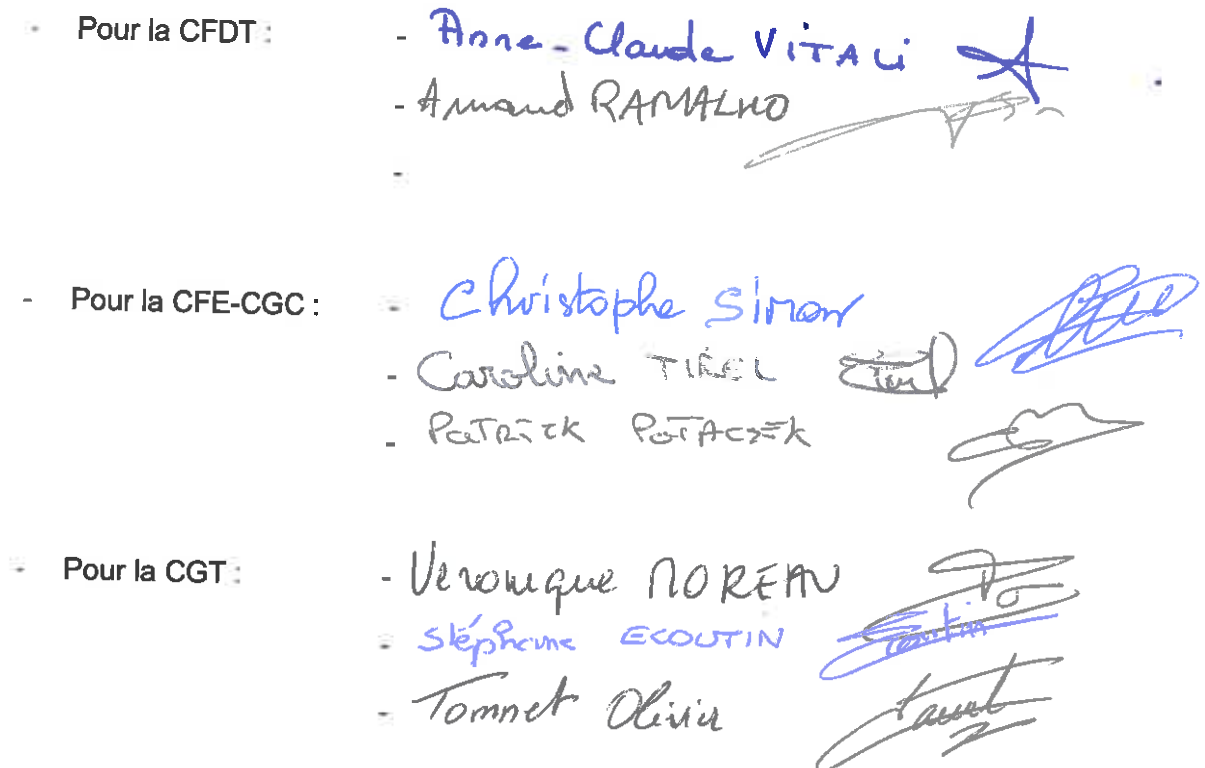 - Pour la CFDT : - Anne-Claude VITALI
- Armand RAMALHO
-
- Pour la CFE-CGC : - Christophe Simon
- Caroline TIREL
- PATRICK POTACZEK
- Pour la CGT : - Veronique MOREAU
- Stéphane ECOUTIN
- Tonnet Olivier